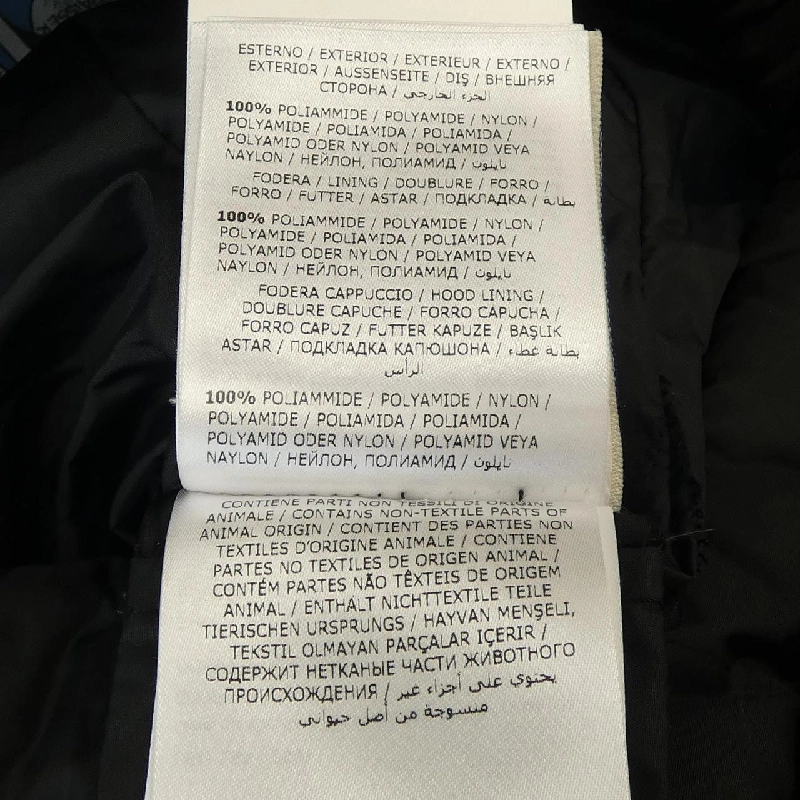 ESTERNO / EXTERIOR / EXTERIEUR / EXTERNO /
EXTERIOR / AUSSENSEITE / DIŞ / ВНЕШНЯЯ
СТОРОНА / الجزء الخارجي
100% POLIAMMIDE / POLYAMIDE / NYLON /
POLYAMIDE / POLIAMIDA / POLIAMIDA /
POLYAMID ODER NYLON / POLYAMID VEYA
NAYLON / НЕЙЛОН, ПОЛИАМИД / نايلون
FODERA / LINING / DOUBLURE / FORRO /
FORRO / FUTTER / ASTAR / ПОДКЛАДКА / بطانة
100% POLIAMMIDE / POLYAMIDE / NYLON /
POLYAMIDE / POLIAMIDA / POLIAMIDA /
POLYAMID ODER NYLON / POLYAMID VEYA
NAYLON / НЕЙЛОН, ПОЛИАМИД / نايلون
FODERA CAPPUCCIO / HOOD LINING /
DOUBLURE CAPUCHE / FORRO CAPUCHA /
FORRO CAPUZ / FUTTER KAPUZE / BAŞLIK
ASTAR / ПОДКЛАДКА КАПЮШОНА / بطانة غطاء
الرأس
100% POLIAMMIDE / POLYAMIDE / NYLON /
POLYAMIDE / POLIAMIDA / POLIAMIDA /
POLYAMID ODER NYLON / POLYAMID VEYA
NAYLON / НЕЙЛОН, ПОЛИАМИД / نايلون
CONTIENE PARTI NON TESSILI DI ORIGINE
ANIMALE / CONTAINS NON-TEXTILE PARTS OF
ANIMAL ORIGIN / CONTIENT DES PARTIES NON
TEXTILES D'ORIGINE ANIMALE / CONTIENE
PARTES NO TEXTILES DE ORIGEN ANIMAL /
CONTÉM PARTES NÃO TÊXTEIS DE ORIGEM
ANIMAL / ENTHÄLT NICHTTEXTILE TEILE
TIERISCHEN URSPRUNGS / HAYVAN MENŞELİ,
TEKSTIL OLMAYAN PARÇALAR IÇERIR /
СОДЕРЖИТ НЕТКАНЫЕ ЧАСТИ ЖИВОТНОГО
ПРОИСХОЖДЕНИЯ / يحتوي على أجزاء غير
منسوجة من أصل حيواني